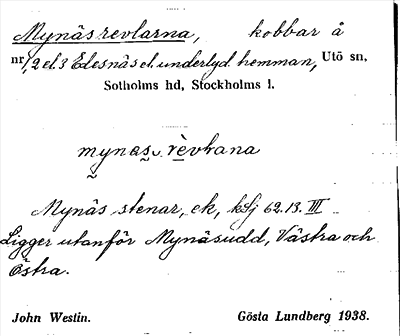 Mynäsrevlarna, kobbar å
nr 1, 2 el. 3 Edesnäs el. underlyd. hemman, Utö sn,
Sotholms hd, Stockholms l.
mynas rèvlrana
Mynäs stenar, ek, ksj 62.13. III
Ligger utanför Mynäsudd, Västra och
Östra.
John Westin. Gösta Lundberg 1938.